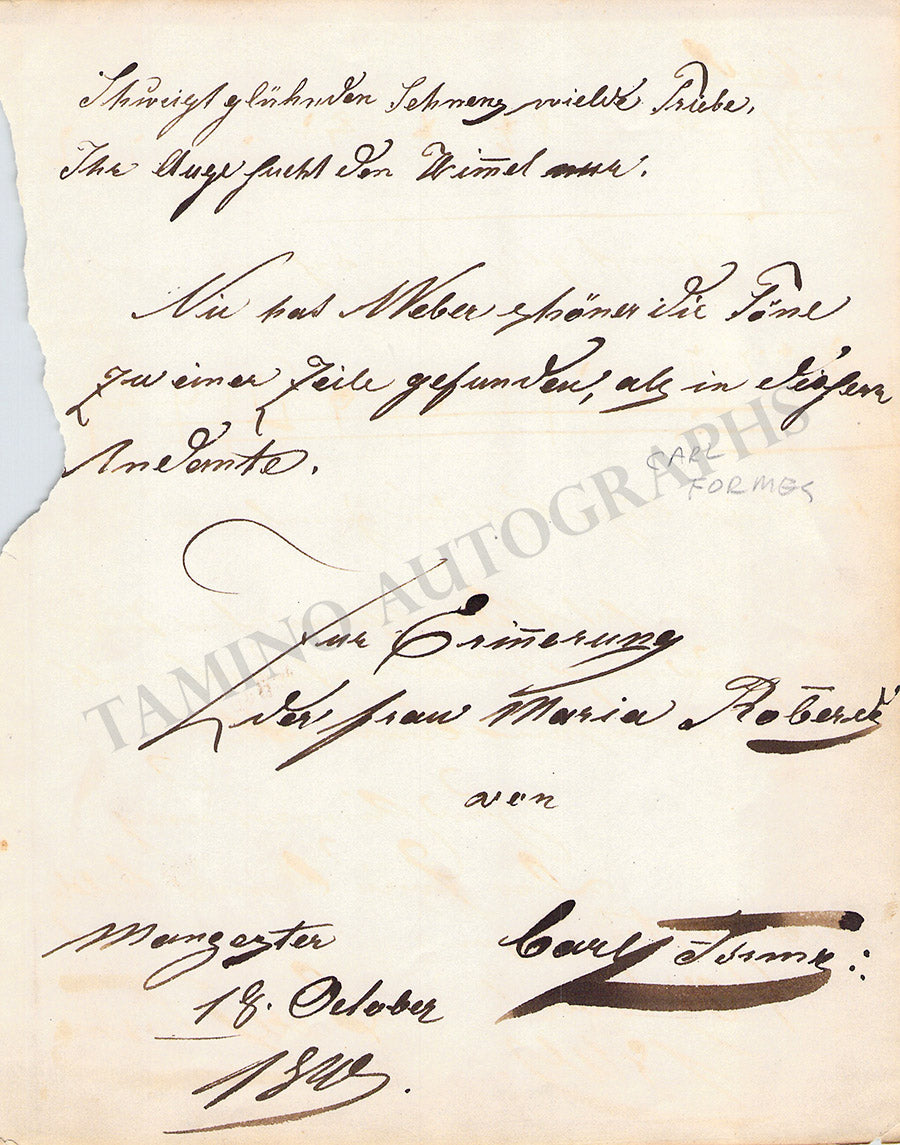 Schweigt glühnden Sehnens wilde Triebe,
Ihr Auge sucht den Himmel nur.
Nie hat Weber schöner die Töne
zu einer Zeile gefunden, als in diesem
Andante.
CARL
FORMES
TAMINO AUTOGRAPHS
Zur Erinnerung
der Frau Maria
von
Mangester
18. October
Carl Formes